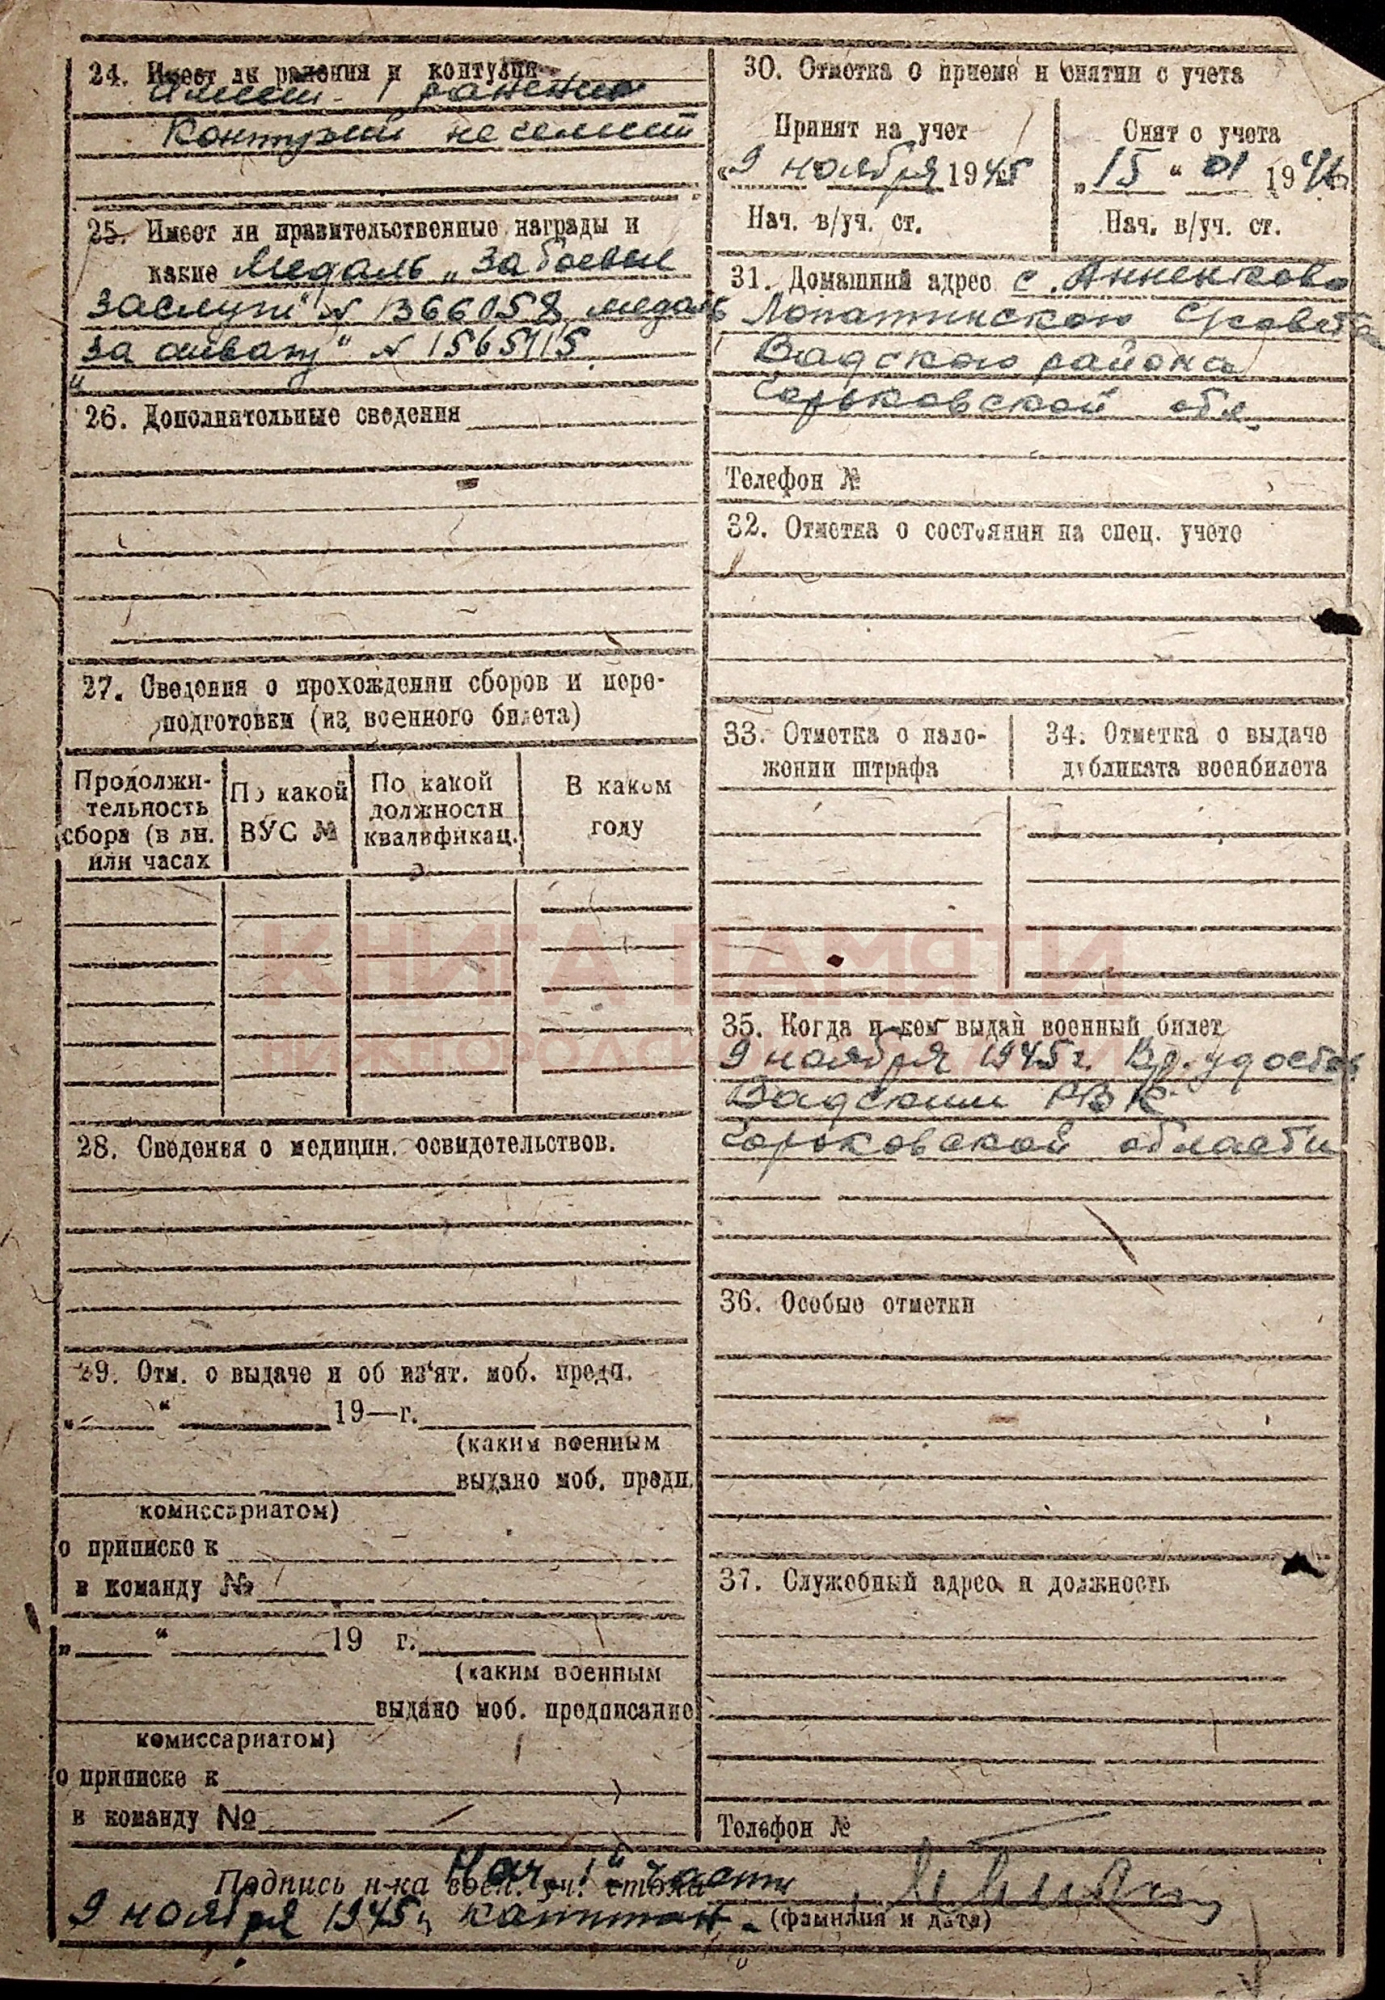 24. Имеет ли ранения и контузии
Имеет 1 ранение
Контузий не имеет
25. Имеет ли правительственные награды и
какие Медаль „За боевые
заслуги“ № 1366058, медаль
„За отвагу“ № 1565715.
26. Дополнительные сведения
27. Сведения о прохождении сборов и пере-
подготовки (из военного билета)
Продолжи-
тельность
сбора (в дн.
или часах
По какой
ВУС №
По какой
должности
квалификац.
В каком
году
28. Сведения о медицин. освидетельствов.
29. Отм. о выдаче и об из'ят. моб. предп.
„ “ 19—г.
(каким военным
выдано моб. предп.
комиссариатом)
о приписке к
в команду №
„ “ 19 г.
(каким военным
выдано моб. предписание
комиссариатом)
о приписке к
в команду №
30. Отметка о приеме и снятии с учета
Принят на учет
„9 ноября 1945
Нач. в/уч. ст.
Снят с учета
„15“ 01 1946
Нач. в/уч. ст.
31. Домашний адрес с. Анненково
Лопатинского С/совета
Вадского района
Горьковской обл.
Телефон №
32. Отметка о состоянии на спец. учете
33. Отметка о нало-
жении штрафа
34. Отметка о выдаче
дубликата военбилета
35. Когда и кем выдан военный билет
9 ноября 1945 г. Вр. удостов
Вадским РВК
Горьковской области
36. Особые отметки
37. Служебный адрес и должность
Телефон №
Нач. 1й части
Подпись н-ка воен. уч. стола
9 ноября 1945 г. капитан -
(фамилия и дата)
КНИГА ПАМЯТИ